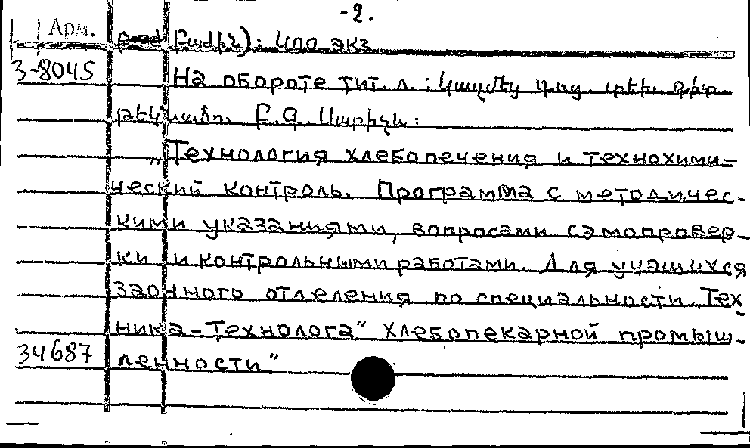 -2.
Арм. բաժին): 400 экз
3-8045 На обороте тит. л.: Կազմեց դոց. տեխ. գիտ.
թեկնածու Է. Գ.
„Технология хлебопечения и технохими-
ческий контроль. Программа с методичес-
кими указаниями, вопросами самопровер-
ки и контрольными работами. Для учащихся
заочного отделения по специальности „Тех
ника-технолога" хлебопекарной промыш-
34687 ленности"